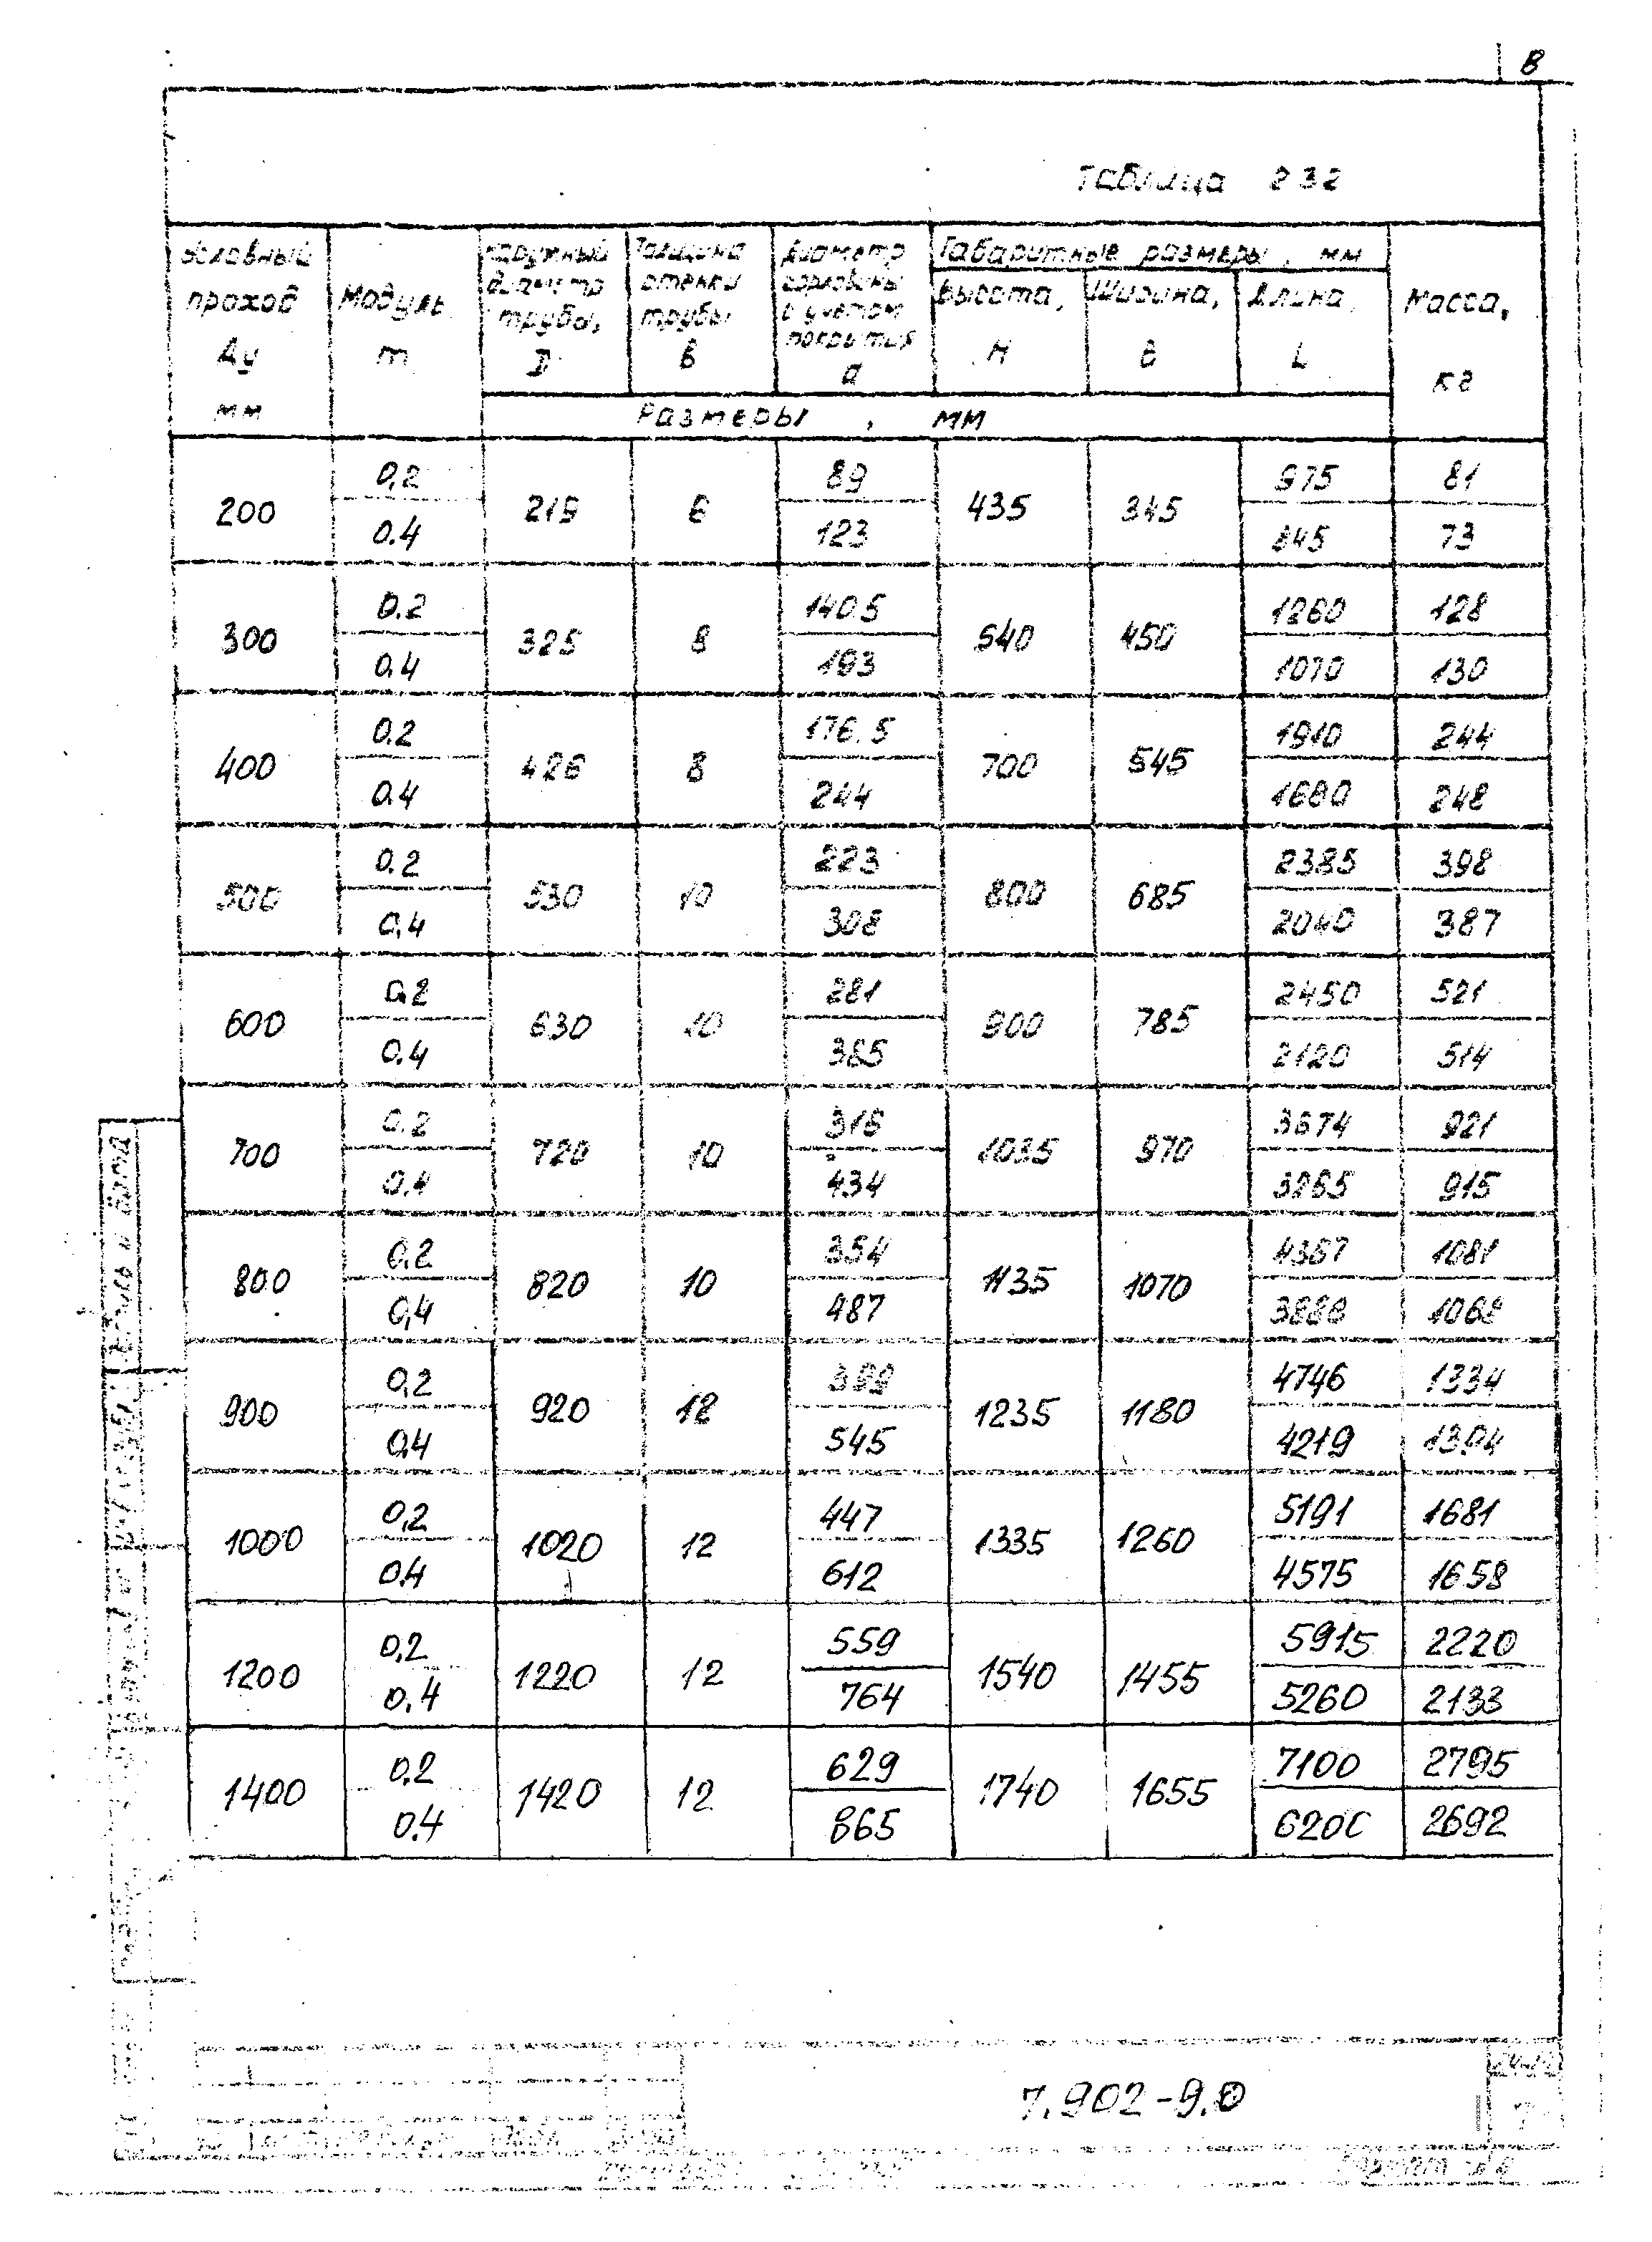 8
Таблица 2 3 2
Условный проход Ду мм
Модуль m
Наружный диаметр трубы, D
Толщина стенки трубы в
Диаметр горловины с учетом покрытия d
Габаритные размеры, мм
Высота, H
Ширина, В
Длина, L
Масса, кг
Размеры, мм
200 0,2 219 6 89 435 345 975 81
0.4 123 845 73
300 0.2 325 8 140.5 540 450 1260 128
0.4 193 1070 130
400 0.2 426 8 176.5 700 545 1910 244
0.4 244 1680 248
500 0.2 530 10 223 800 685 2385 398
0,4 308 2040 387
600 0.2 630 10 281 900 785 2450 521
0.4 385 2120 514
700 0.2 720 10 315 1035 970 3674 921
0.4 434 3265 915
800 0.2 820 10 354 1135 1070 4367 1081
0,4 487 3880 1068
900 0,2 920 12 399 1235 1180 4746 1334
0,4 545 4219 1304
1000 0,2 1020 12 447 1335 1260 5191 1681
0.4 612 4575 1658
1200 0,2 1220 12 559 1540 1455 5915 2220
0,4 764 5260 2133
1400 0.2 1420 12 629 1740 1655 7100 2795
0.4 865 6200 2692
7.902-9.0
7